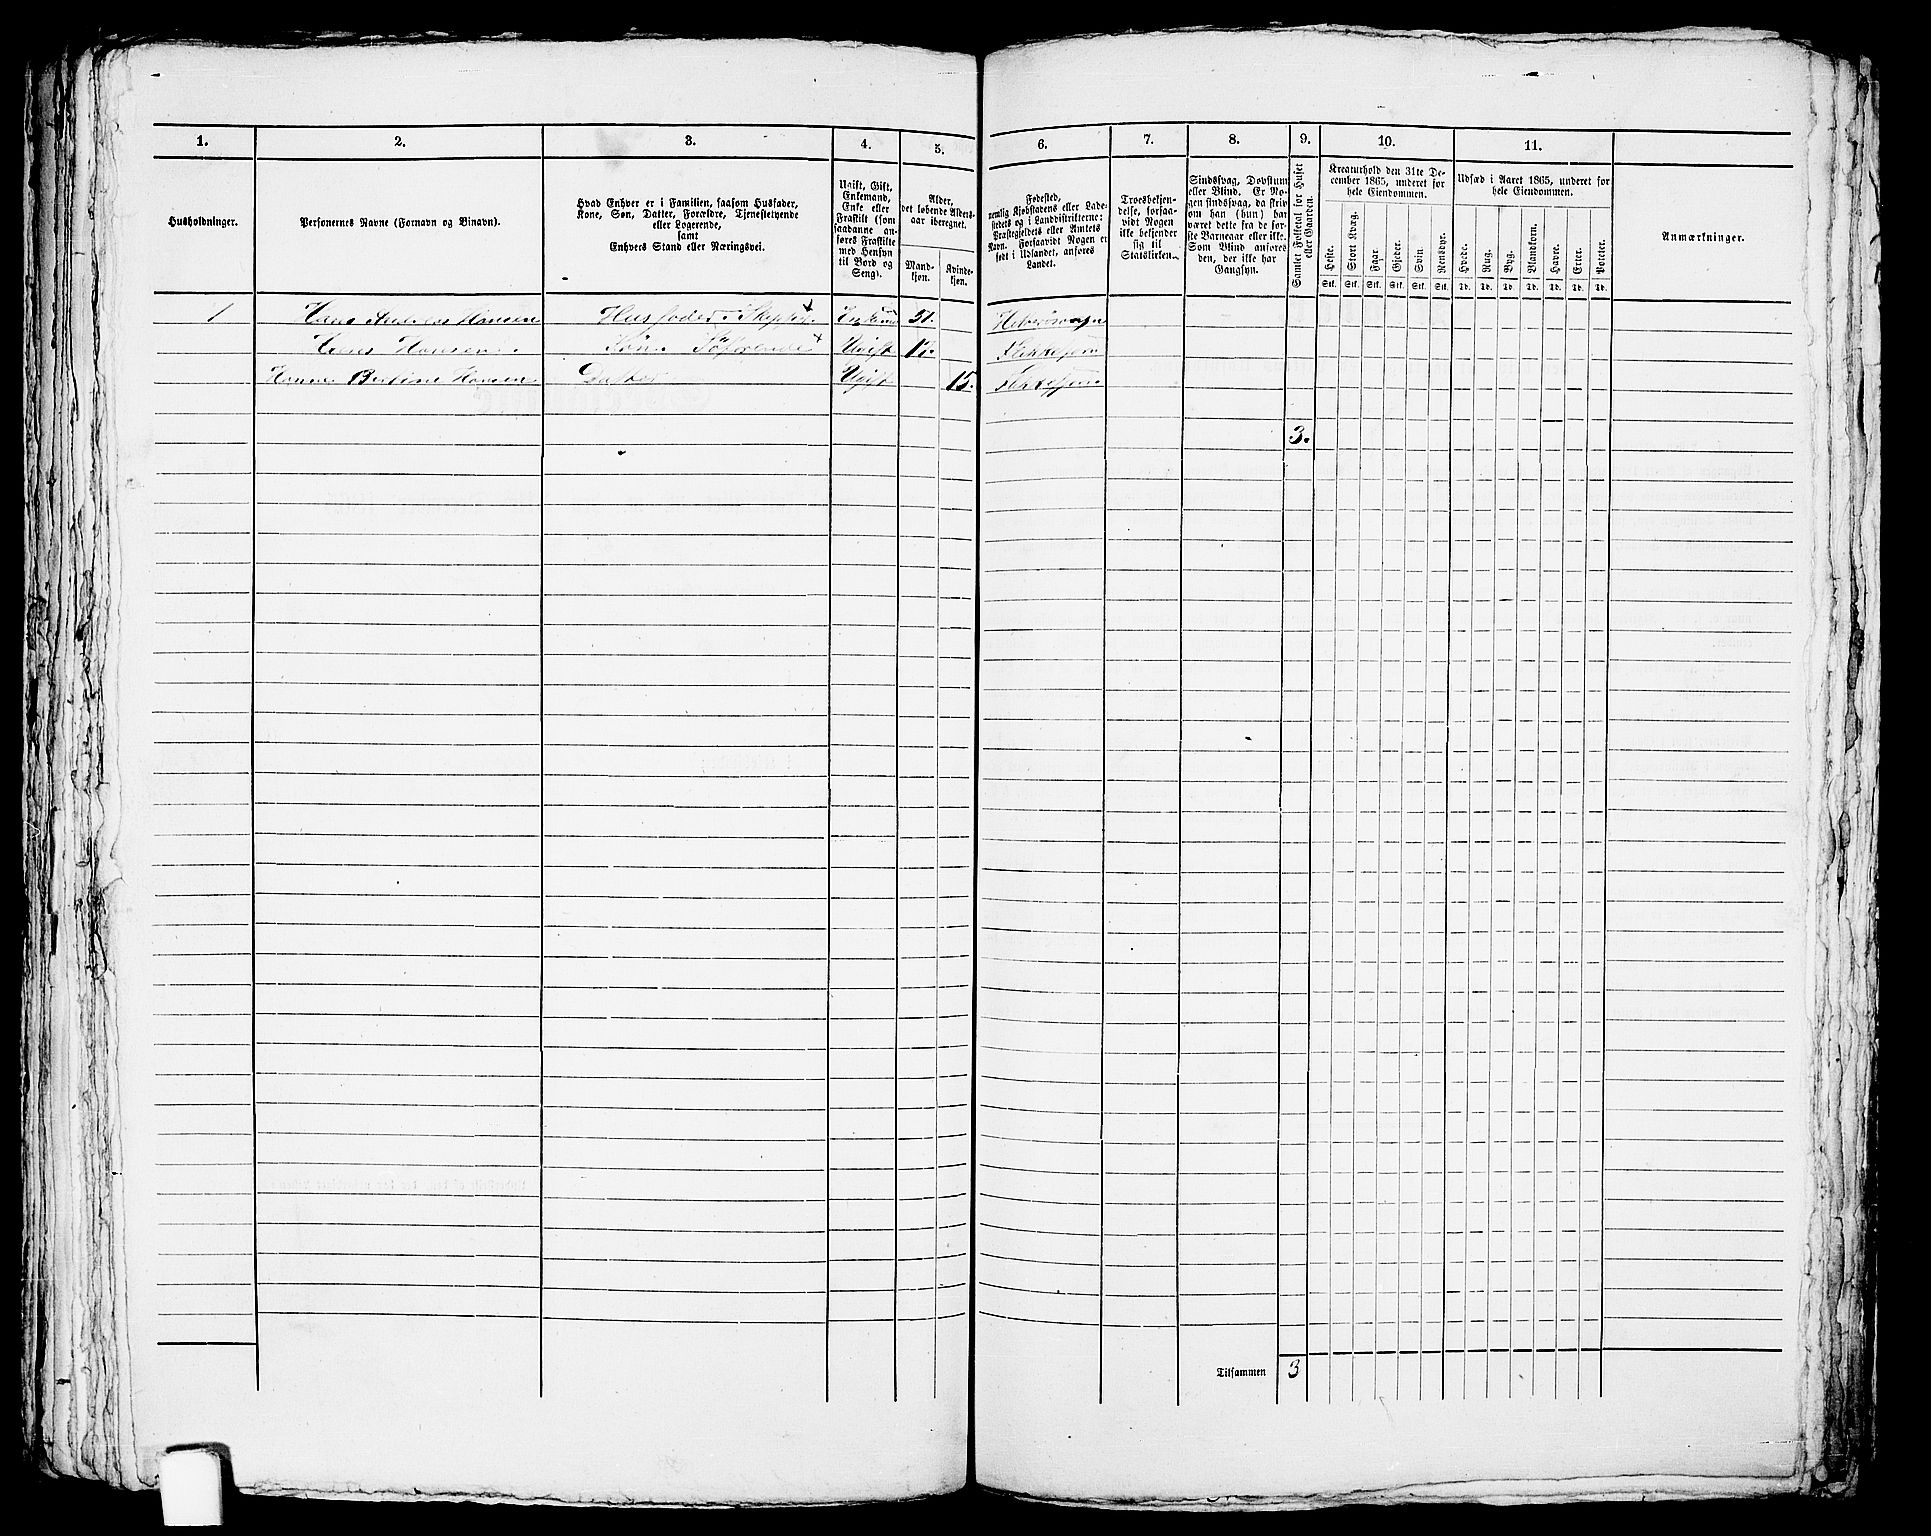 1. 2. 3. 4. 5. 6. 7. 8. 9. 10. 11.
Husholdninger.
Personernes Navne (Fornavn og Binavn).
Hvad Enhver er i Familien, saasom Husfader,
Kone, Søn, Datter, Forældre, Tjenestetyende
eller Logerende,
samt
Enhvers Stand eller Næringsvei.
Ugift, Gift,
Enkemand,
Enke eller
Fraskilt (som
saadanne an-
føres Fraskilte
med Hensyn
til Bord og
Seng).
Alder,
det løbende Alders-
aar iberegnet.
Mand-
kjøn.
Kvinde-
kjøn.
Fødested,
nemlig Kjøbstadens eller Lade-
stedets og i Landdistrikterne:
Præstegjeldets eller Amtets
Navn. Forsaavidt Nogen er
født i Udlandet, anføres
Landet.
Troesbekjen-
delse, forsaa-
vidt Nogen
ikke bekjender
sig til
Statskirken.
Sindssvag, Døvstum
eller Blind. Er No-
gen sindssvag, da skriv
om han (hun) har
været dette fra de før-
ste Barneaar eller ikke.
Som Blind anføres
den, der ikke har
Gangsyn.
Samlet Folketal for Huset
eller Gaarden.
Kreaturhold den 31te De-
cember 1865, underet for
hele Eiendommen.
Heste. Stort Kvæg. Faar. Gjeder. Svin. Rensdyr.
Stk. Stk. Stk. Stk. Stk. Stk.
Udsæd i Aaret 1865, underet for
hele Eiendommen.
Hvede. Rug. Byg. Blandkorn. Havre. Erter. Poteter.
Td. Td. Td. Td. Td. Td. Td.
Anmærkninger.
1 Hans Andreas Hansen Husfader Skipper Enkemd 51.
Hans Hansen Søn Søfarende Ugift 17. Flekkefjord
Hanne Bertine Hansen Datter Ugift 15. Flekkefjord
3.
Tilsammen 3